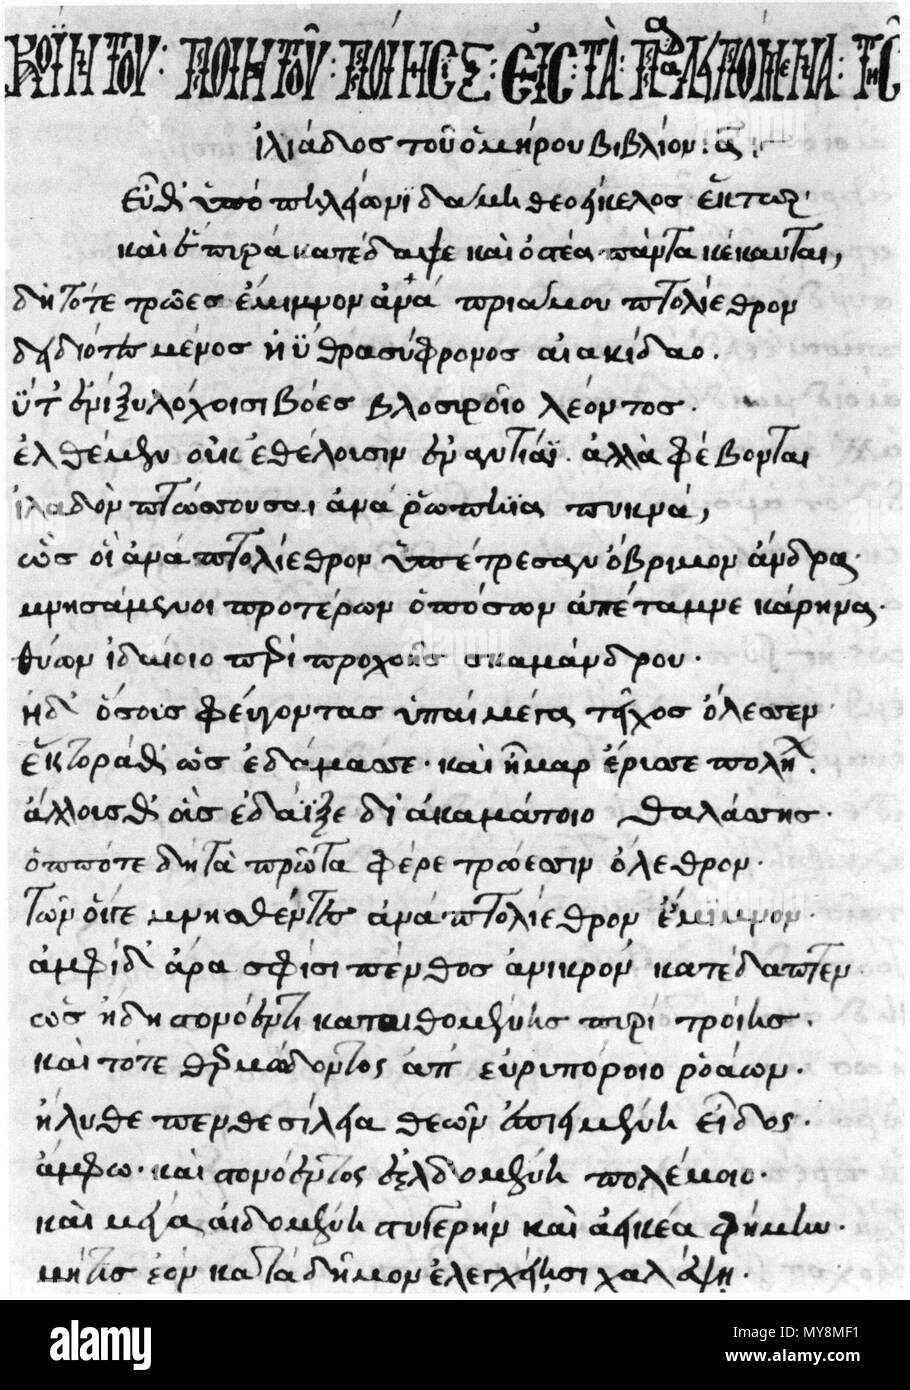 ΚΟΪΝΤΟΥ: ΠΟΙΗΤΟΥ: ΠΟΙΗΣΙΣ: ΕΙΣ ΤΑ: ΠΑΡΑΛΕΙΠΟΜΕΝΑ: ΤΗΣ
ἰλιάδος τοῦ ὁμήρου βιβλίον: α
εὖθ' ὑπὸ πηλείωνι δάμη θεοείκελος ἕκτωρ·
καὶ ἑ πυρὰ κατέδαψε καὶ ὀστέα πάντα κέκαυται,
δὴ τότε τρῶες ἔμιμνον ἀνὰ πριάμου πτολίεθρον
δηδιότες μένος ἠῢ θρασύφρονος αἰακίδαο.
ἠΰτ' ἐνὶ ξυλόχοισι βόες βλοσυροῖο λέοντος·
ἐλθέμεν οὐκ ἐθέλουσιν ἐναντίαι· ἀλλὰ φέβονται
ἰλαδὸν πτώσσουσαι ἀνὰ ῥωπήϊα πυκνά,
ὣς οἳ ἀνὰ πτολίεθρον ὑπέτρεσαν ὄβριμον ἄνδρα·
μνησάμενοι προτέρων ὁπόσων ἀπέταμνε κάρηνα·
θύων ἰδαίοιο περὶ προχοῆς σκαμάνδρου·
ἠδ' ὅσους φεύγοντας ὑπαὶ μέγα τεῖχος ὄλεσσεν
ἕκτορά θ' ὡς ἐδάμασσε· καὶ ἤμαρ ἔρυσσε πόληϊ.
ἄλλους θ' οὓς ἐδάϊξε δι' ἀκαμάτοιο θαλάσσης·
ὁππότε δὴ τὰ πρῶτα φέρε τρώεσσιν ὄλεθρον·
τῶν οἵγε μνησθέντες ἀνὰ πτολίεθρον ἔμιμνον·
ἀμφὶ δ' ἄρα σφίσι πένθος ἀνιηρὸν κατέδαπτεν
ὡς ἤδη στονόεντι καταιθομένης πυρὶ τροίης.
καὶ τότε θερμώδοντος ἀπ' εὐρυπόροιο ῥοάων·
ἤλυθε πενθεσίλεια θεῶν ἐπιειμένη εἶδος·
ἄμφω· καὶ στονόεντος ἐελδομένη πολέμοιο·
καὶ μέγα αἰδομένη στυγερὴν καὶ ἀεικέα φήμην·
μήτις ἑὸν κατὰ δῆμον ἐλεγχείησι χαλέψῃ·
alamy
Image ID: MY8MF1
www.alamy.com